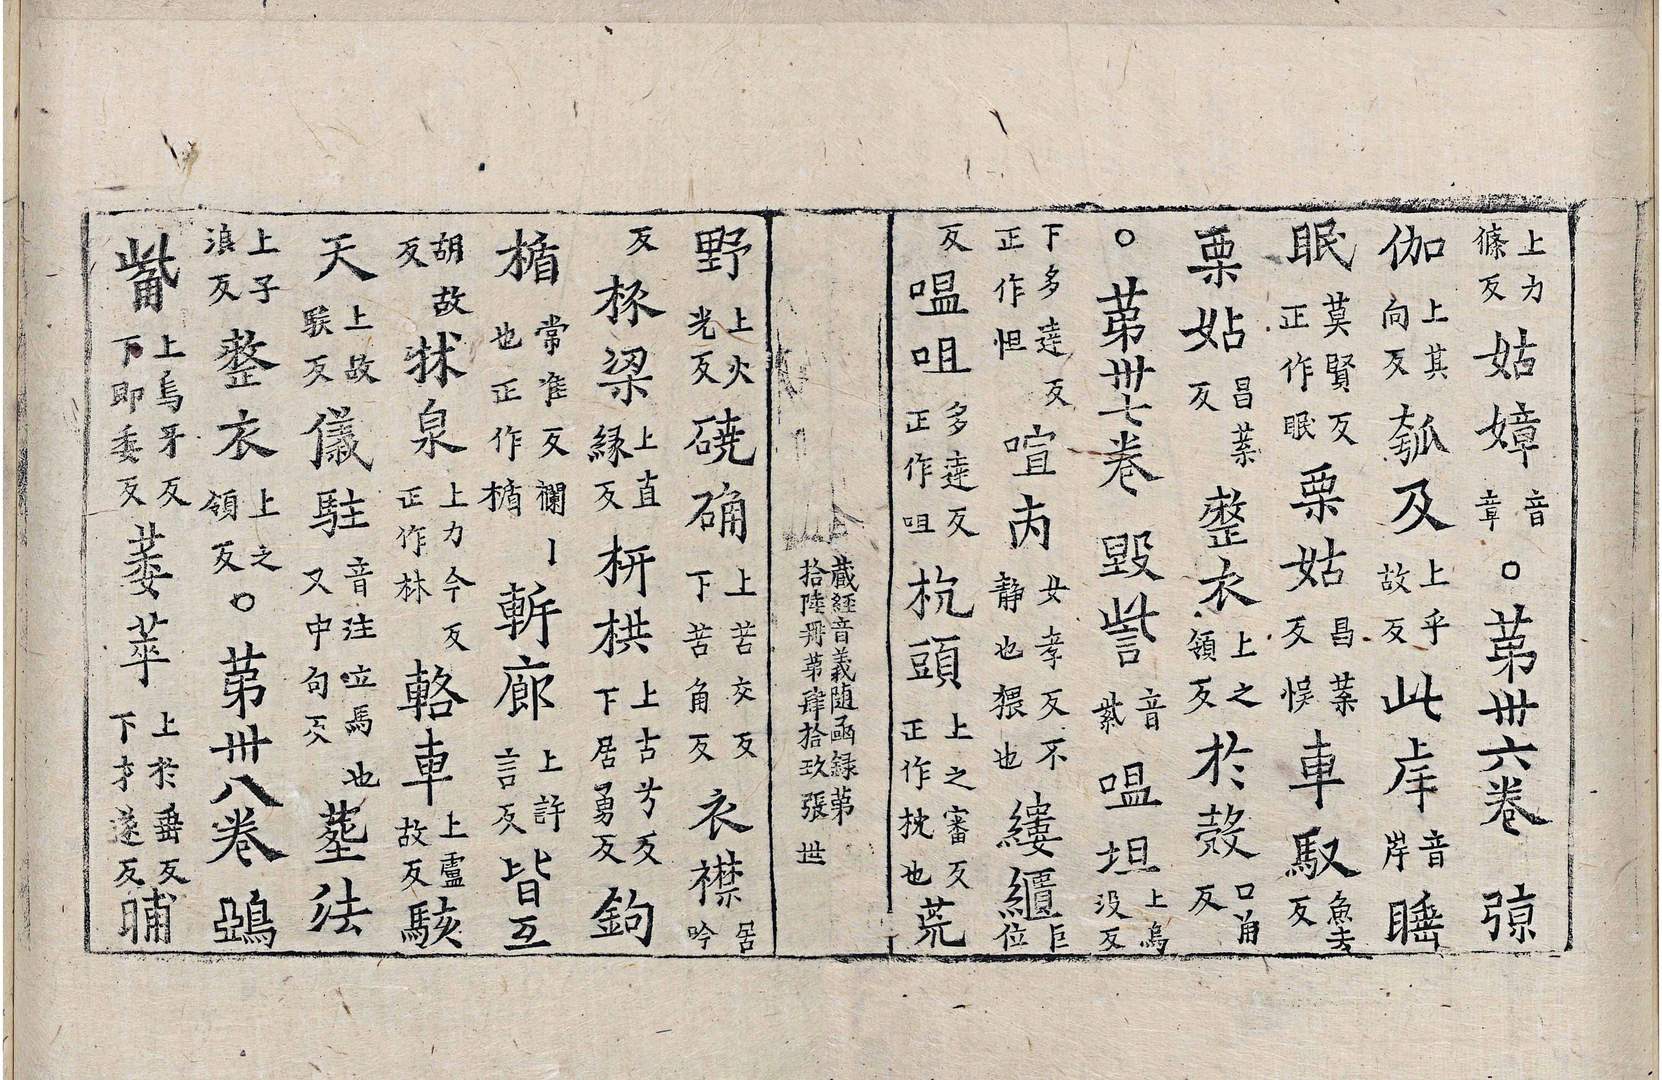 上力㰅反姑嫜音章○苐卅六卷弶
伽上其向反瓡及上乎故反此㡿音岸睡
眠莫賢反正作眠栗姑昌葉反悮車馭魚去反
栗姑昌葉反整衣上之領反於㱿口角反
○苐卅七卷毀訾音紫嗢坦上烏没反
下多達反正作怛喧𠕋女孝反不静也猥也縷䌸巨位
反嗢咀多達反正作咀杭頭上之審反正作枕也荒
藏經音義随函録苐拾陸冊苐肆拾玖張世
野上火光反磽确上苦交反下苦角反衣襟居吟
反椓梁上直縁反枅栱上古兮反下居勇反鉤
楯常准反欄丨也正作楯斬廊上許言反皆互
胡故反秫泉上力今反正作林輅車上盧故反駭
天上故駭反儀駐音注立馬也又中句反𦵏法
上子浪反整衣上之領反○苐卅八卷鵶
觜上烏牙反下即委反萎萃上於垂反下才遂反晡